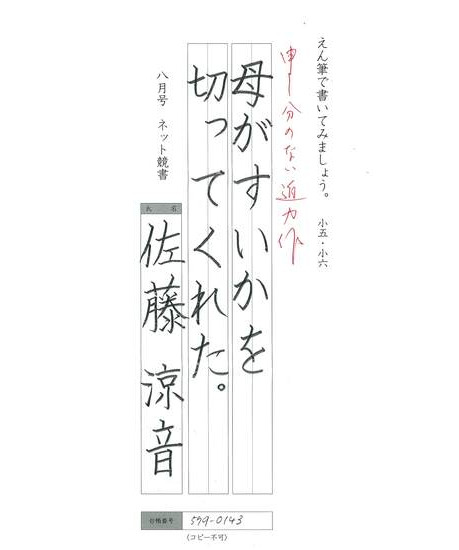 えん筆で書いてみましょう。 小五・小六
申し分のない迫力作
母がすいかを
切ってくれた。
八月号 ネット競書
氏名
佐藤 涼音
台帳番号 579-0143
(コピー不可)